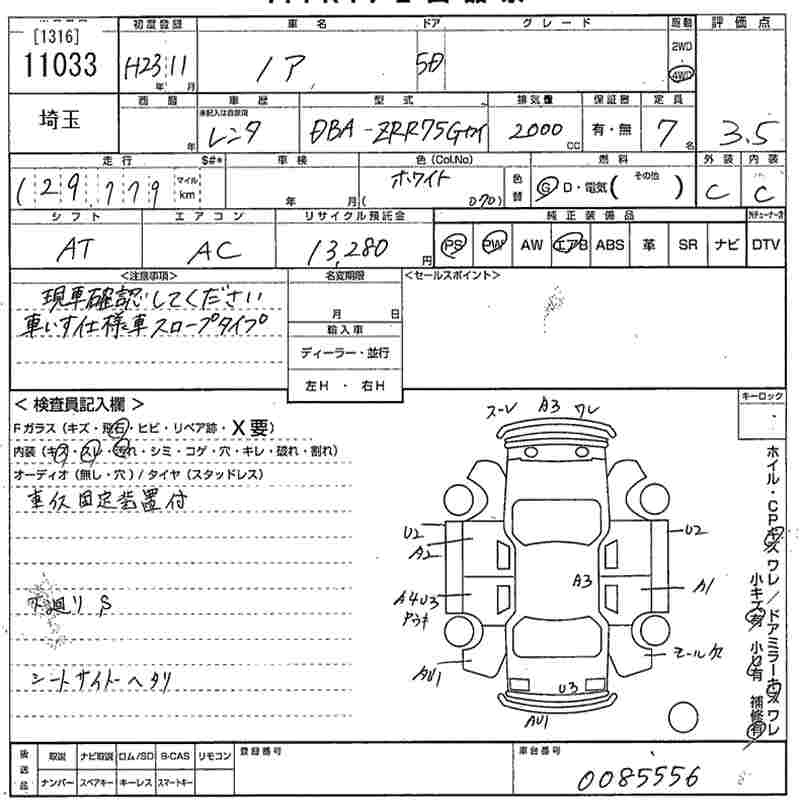 [1316]
11033
初度登録
H23 11
年 月
車名
ノア
ドア
5D
グレード
駆動
2WD
4WD
評価点
3.5
埼玉
西暦
年
車歴
未記入は自家用
レンタ
型式
DBA-ZRR75Gカイ
排気量
2000
CC
保証書
有・無
定員
7
名
走行
$#*
129,779
マイル
km
車検
年 月
色(Col.No)
ホワイト
( 070 )
色替
燃料
G D・電気 (その他 )
外装
C
内装
C
シフト
AT
エアコン
AC
リサイクル預託金
13,280
円
純正装備品
PS PW AW エアB ABS 革 SR ナビ DTV
<注意事項>
現車確認してください
車いす仕様車スロープタイプ
名変期限
月 日
輸入車
ディーラー・並行
左H ・ 右H
<セールスポイント>
<検査員記入欄>
Fガラス(キズ・飛石・ヒビ・リペア跡・X要)
内装(キズ・スレ・汚れ・シミ・コゲ・穴・キレ・破れ・割れ)
オーディオ(無し・穴)/タイヤ(スタッドレス)
車イス固定装置付
下廻り S
シートサイドヘタリ
A3 ワレ
U2
A2
A4U3
AU1
A3
U2
A1
モール欠
U3
AU1
キーロック
ホイル・CPキズ ワレ/ドアミラーキズ ワレ
小キズ有 小U有 補修有
後送品
取説 ナビ取説 ロム/SD B-CAS リモコン
ナンバー スペアキー キーレス スマートキー
登録番号
車台番号
0085556